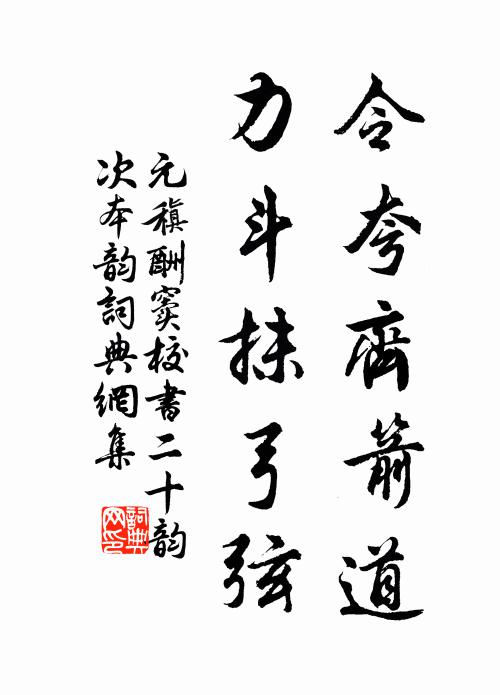 令夸齊箭道
力斗抹弓弦
元稹酬竇校書二十韵
次本韵詞典網集
詞典
网印